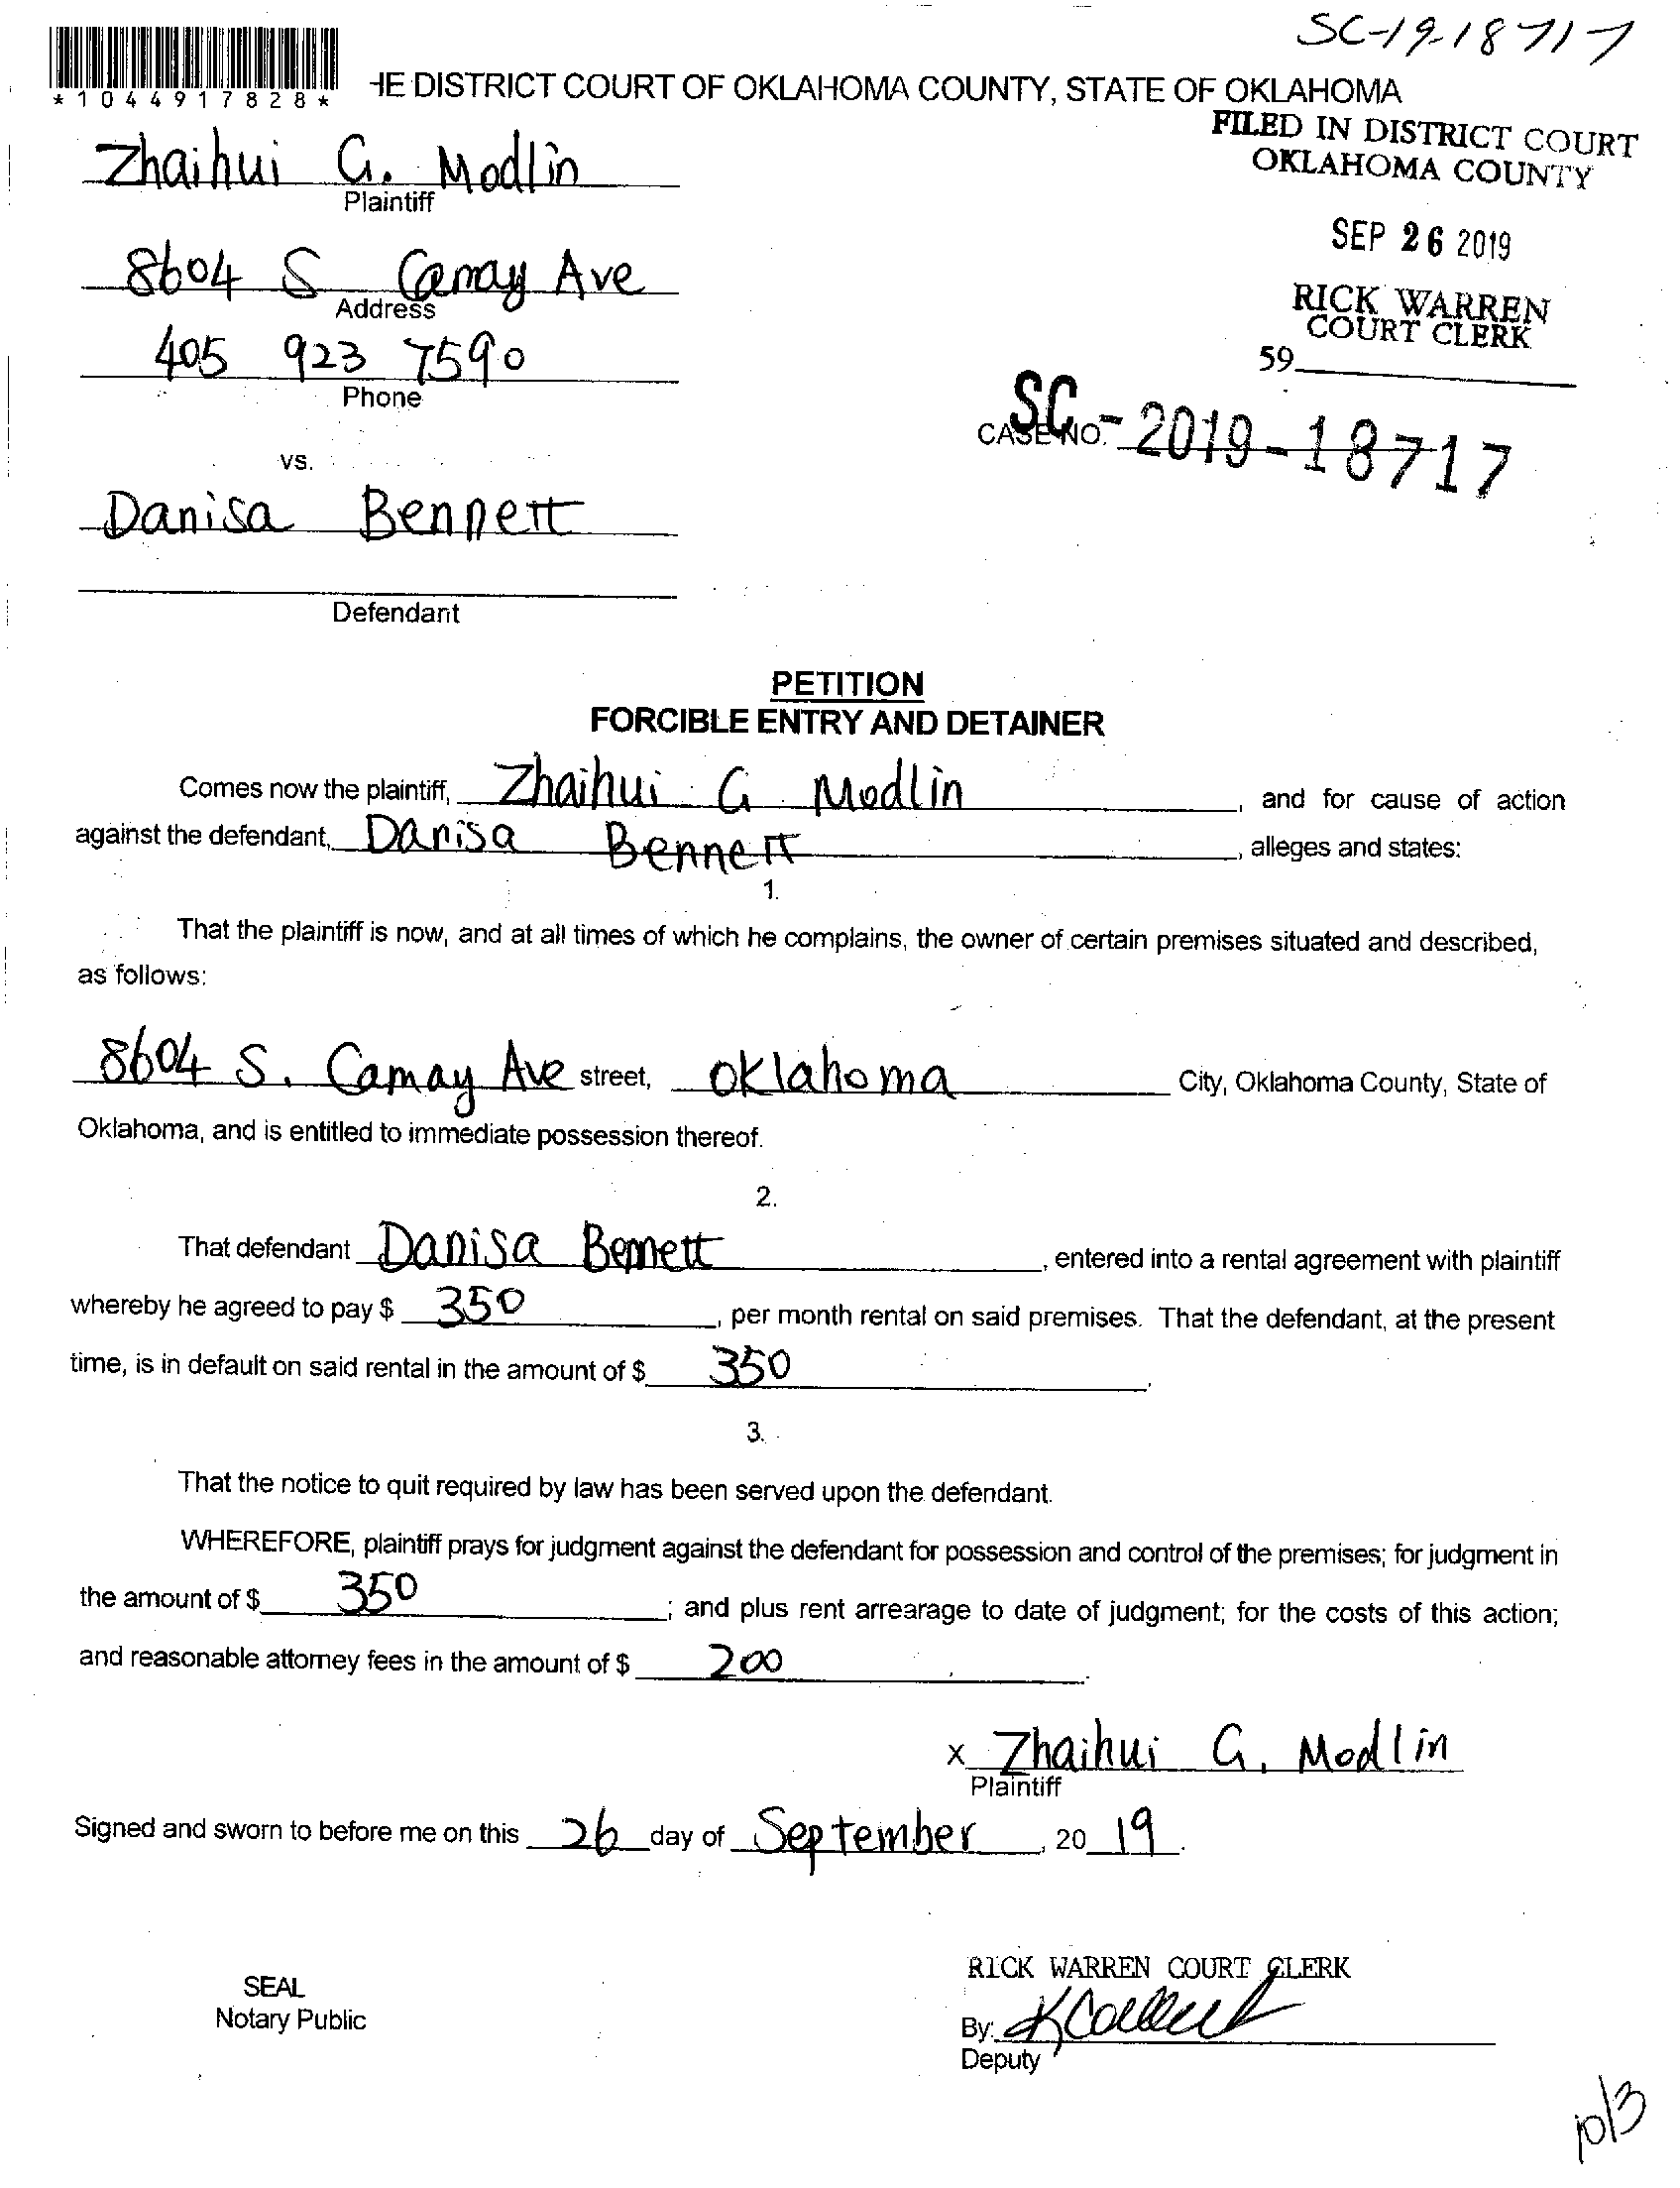 SC-19-18717
*1044917828*
HE DISTRICT COURT OF OKLAHOMA COUNTY, STATE OF OKLAHOMA
FILED IN DISTRICT COURT
OKLAHOMA COUNTY
Zhaihui G. Modlin
Plaintiff
SEP 26 2019
8604 S Camay Ave
Address
RICK WARREN
COURT CLERK
405 923 7590
59
Phone
CASE NO. SC-2019-18717
vs.
Danisa Bennett
Defendant
PETITION
FORCIBLE ENTRY AND DETAINER
Comes now the plaintiff, Zhaihui G Modlin, and for cause of action
against the defendant, Danisa Bennett, alleges and states:
1.
That the plaintiff is now, and at all times of which he complains, the owner of certain premises situated and described,
as follows:
8604 S. Camay Ave street, oklahoma City, Oklahoma County, State of
Oklahoma, and is entitled to immediate possession thereof.
2.
That defendant Danisa Bennett, entered into a rental agreement with plaintiff
whereby he agreed to pay $ 350, per month rental on said premises. That the defendant, at the present
time, is in default on said rental in the amount of $ 350.
3.
That the notice to quit required by law has been served upon the defendant.
WHEREFORE, plaintiff prays for judgment against the defendant for possession and control of the premises; for judgment in
the amount of $ 350; and plus rent arrearage to date of judgment; for the costs of this action;
and reasonable attorney fees in the amount of $ 200.
x Zhaihui G. Modlin
Plaintiff
Signed and sworn to before me on this 26 day of September, 20 19.
RICK WARREN COURT CLERK
SEAL
Notary Public
By:
Deputy
10/3